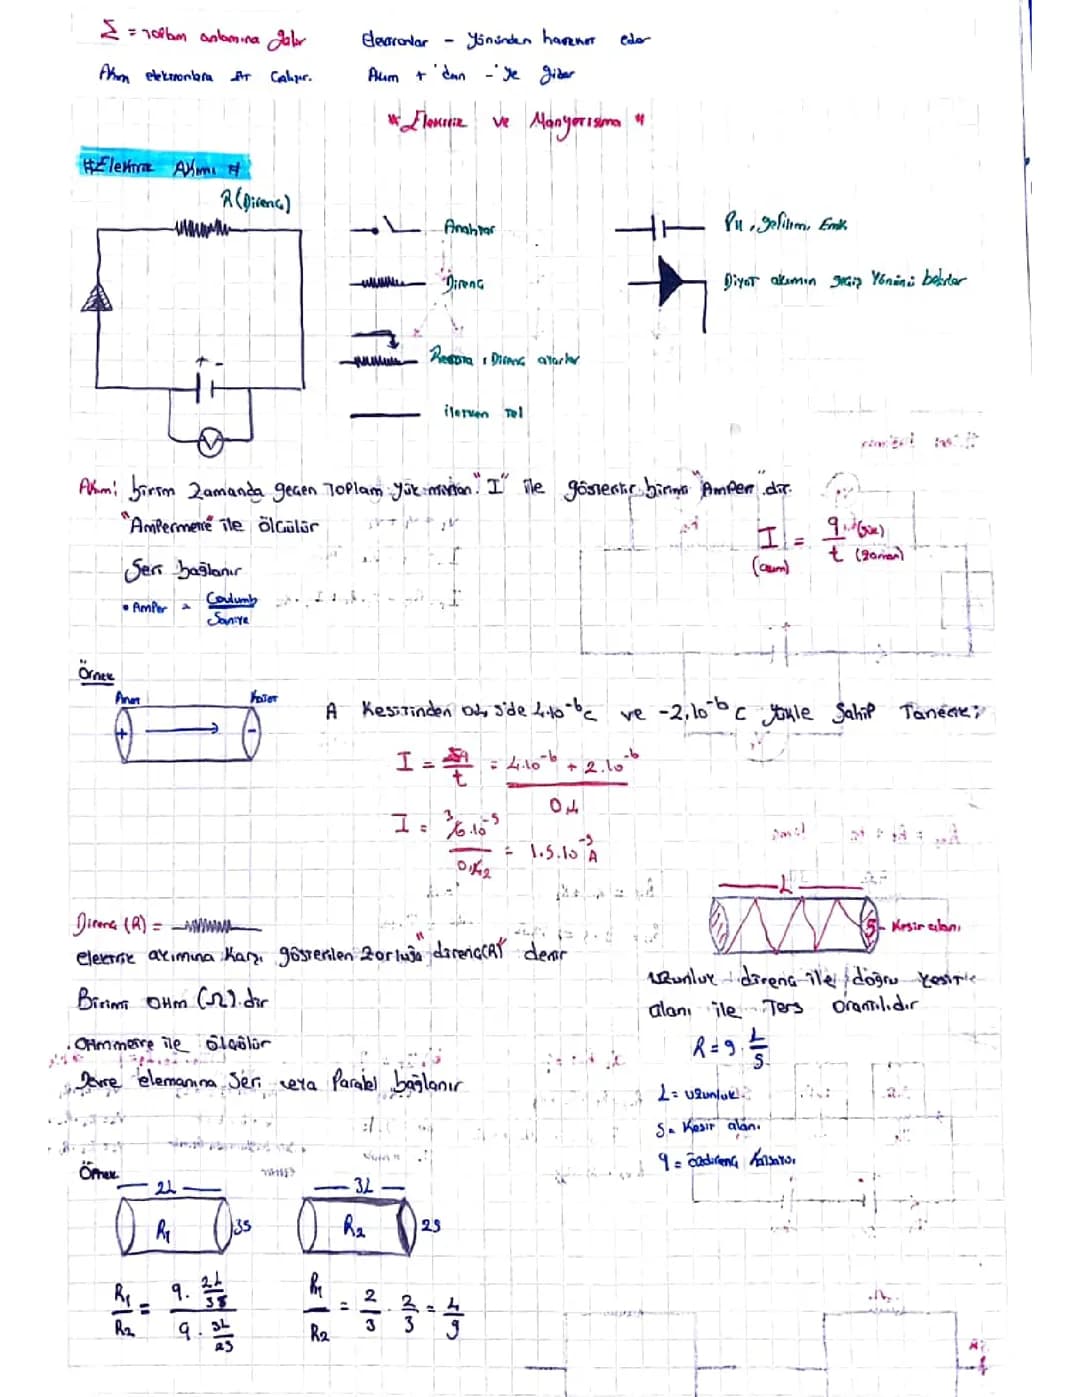 Σ = Toplam anlamına gelir
Elektronlar - yönünden hareket eder
Akım elektronlara zıt Çalışır.
Akım + 'dan -'ye gider
"Elektrik ve Manyetisma"
#Elektrik Akımı #
R(Direnç)
Anahtar
Pil, gerilim, Emk
Direnç
Diyot akımın geçiş Yönünü belirler
Reosta : Direnç ayarlar
iletken Tel
+ -
V
Akım: birim Zamanda geçen Toplam yük miktarı. "I" ile gösterilir birimi "Amper" dir.
"Ampermetre" ile ölçülür
I = q (yük) / t (zaman)
(akım)
Seri bağlanır
• Amper = Coulumb / Saniye
Örnek
Anot Katot
+ -
A Kesitinden 0,4 s'de 4.10⁻⁶ C ve -2.10⁻⁶ C yükle Sahip Tanecik;
I = Σq / t = 4.10⁻⁶ + 2.10⁻⁶ / 0,4
I = 6.10⁻⁵ / 0,4 = 1.5.10⁻⁵ A
3
2
L
Direnç (R) =
S Kesit alanı
elektrik akımına karşı gösterilen zorluğa "direnç(R)" denir
Uzunluk direnç ile doğru kesit
Birimi OHm (Ω) dır
alanı ile Ters Orantılıdır
. OHmmetre ile ölçülür
R = q . L / S
Devre elemanına Seri veya Paralel bağlanır
L = uzunluk
S = Kesit alanı
q = özdirenç katsayısı
Örnek
2L 3L
R₁ 3S R₂ 2S
R₁ / R₂ = q . 2L/3S / q . 3L/2S
R₁ / R₂ = 2/3 . 2/3 = 4/9